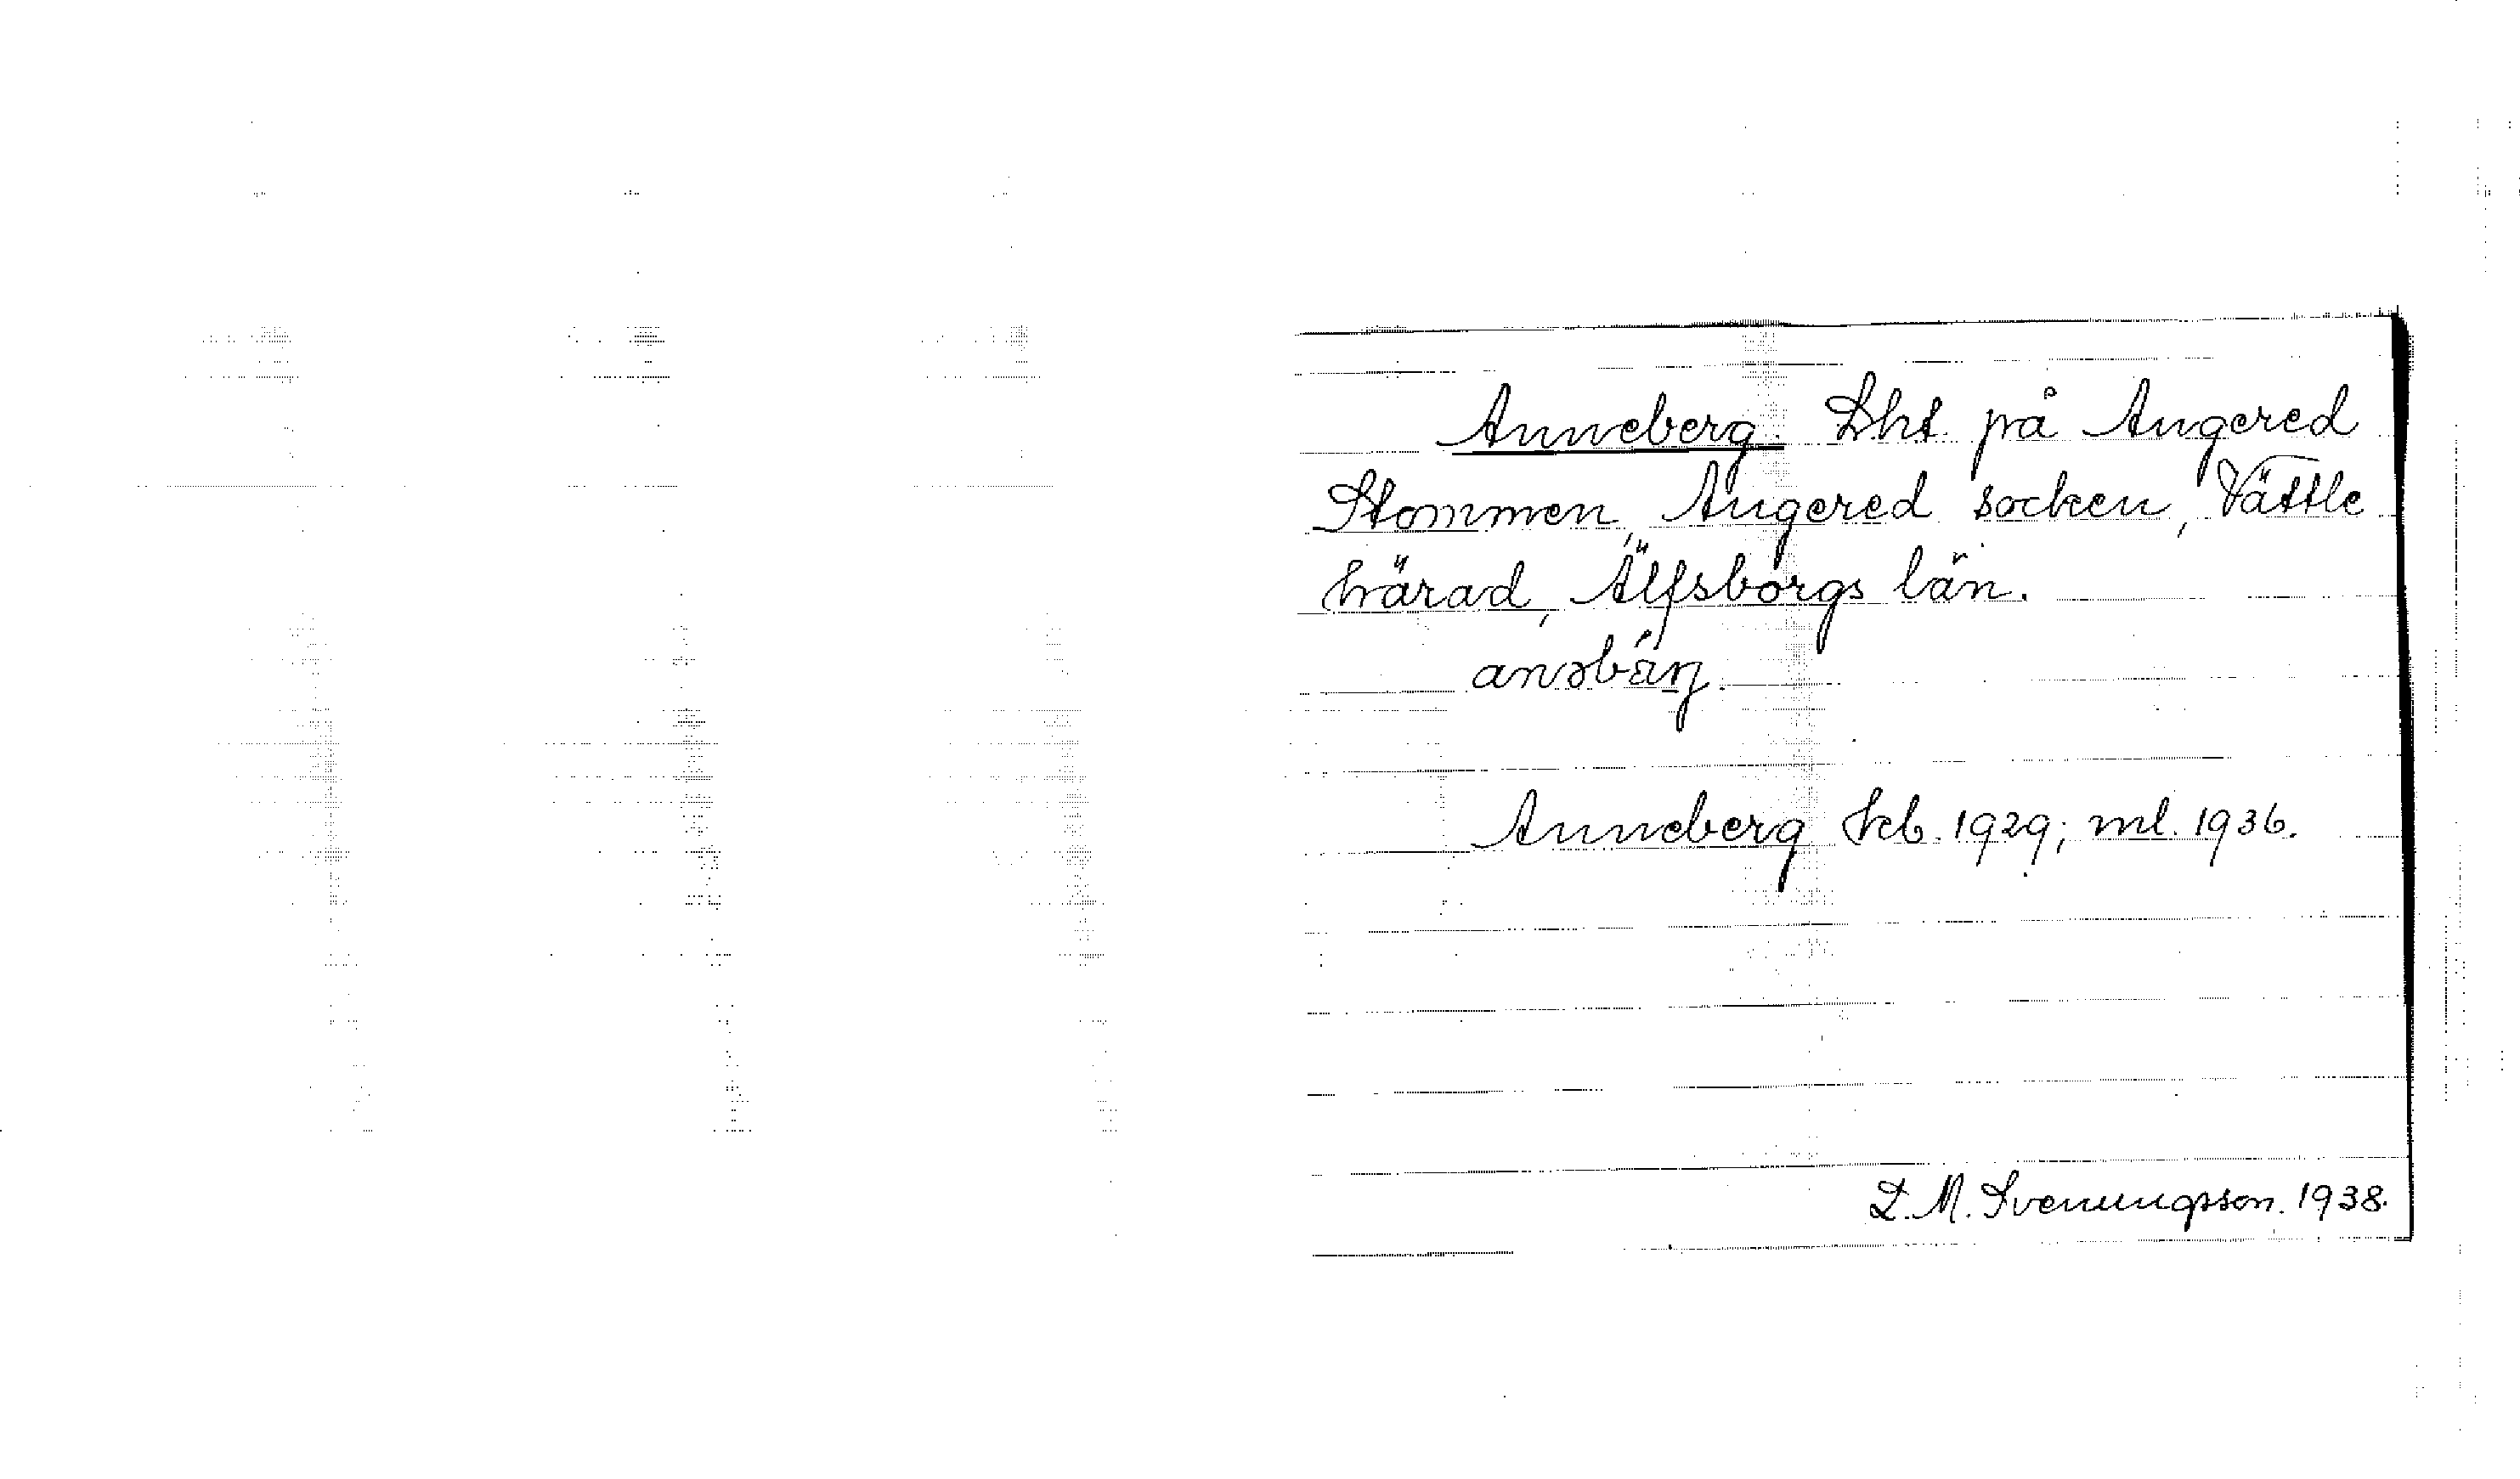 Anneberg. Lht på Angered
Stommen, Angered socken, Vättle
härad, Älfsborgs län.
anəbärj.
Anneberg Jeb. 1929; ml. 1936.
L. M. Svenungsson. 1938.